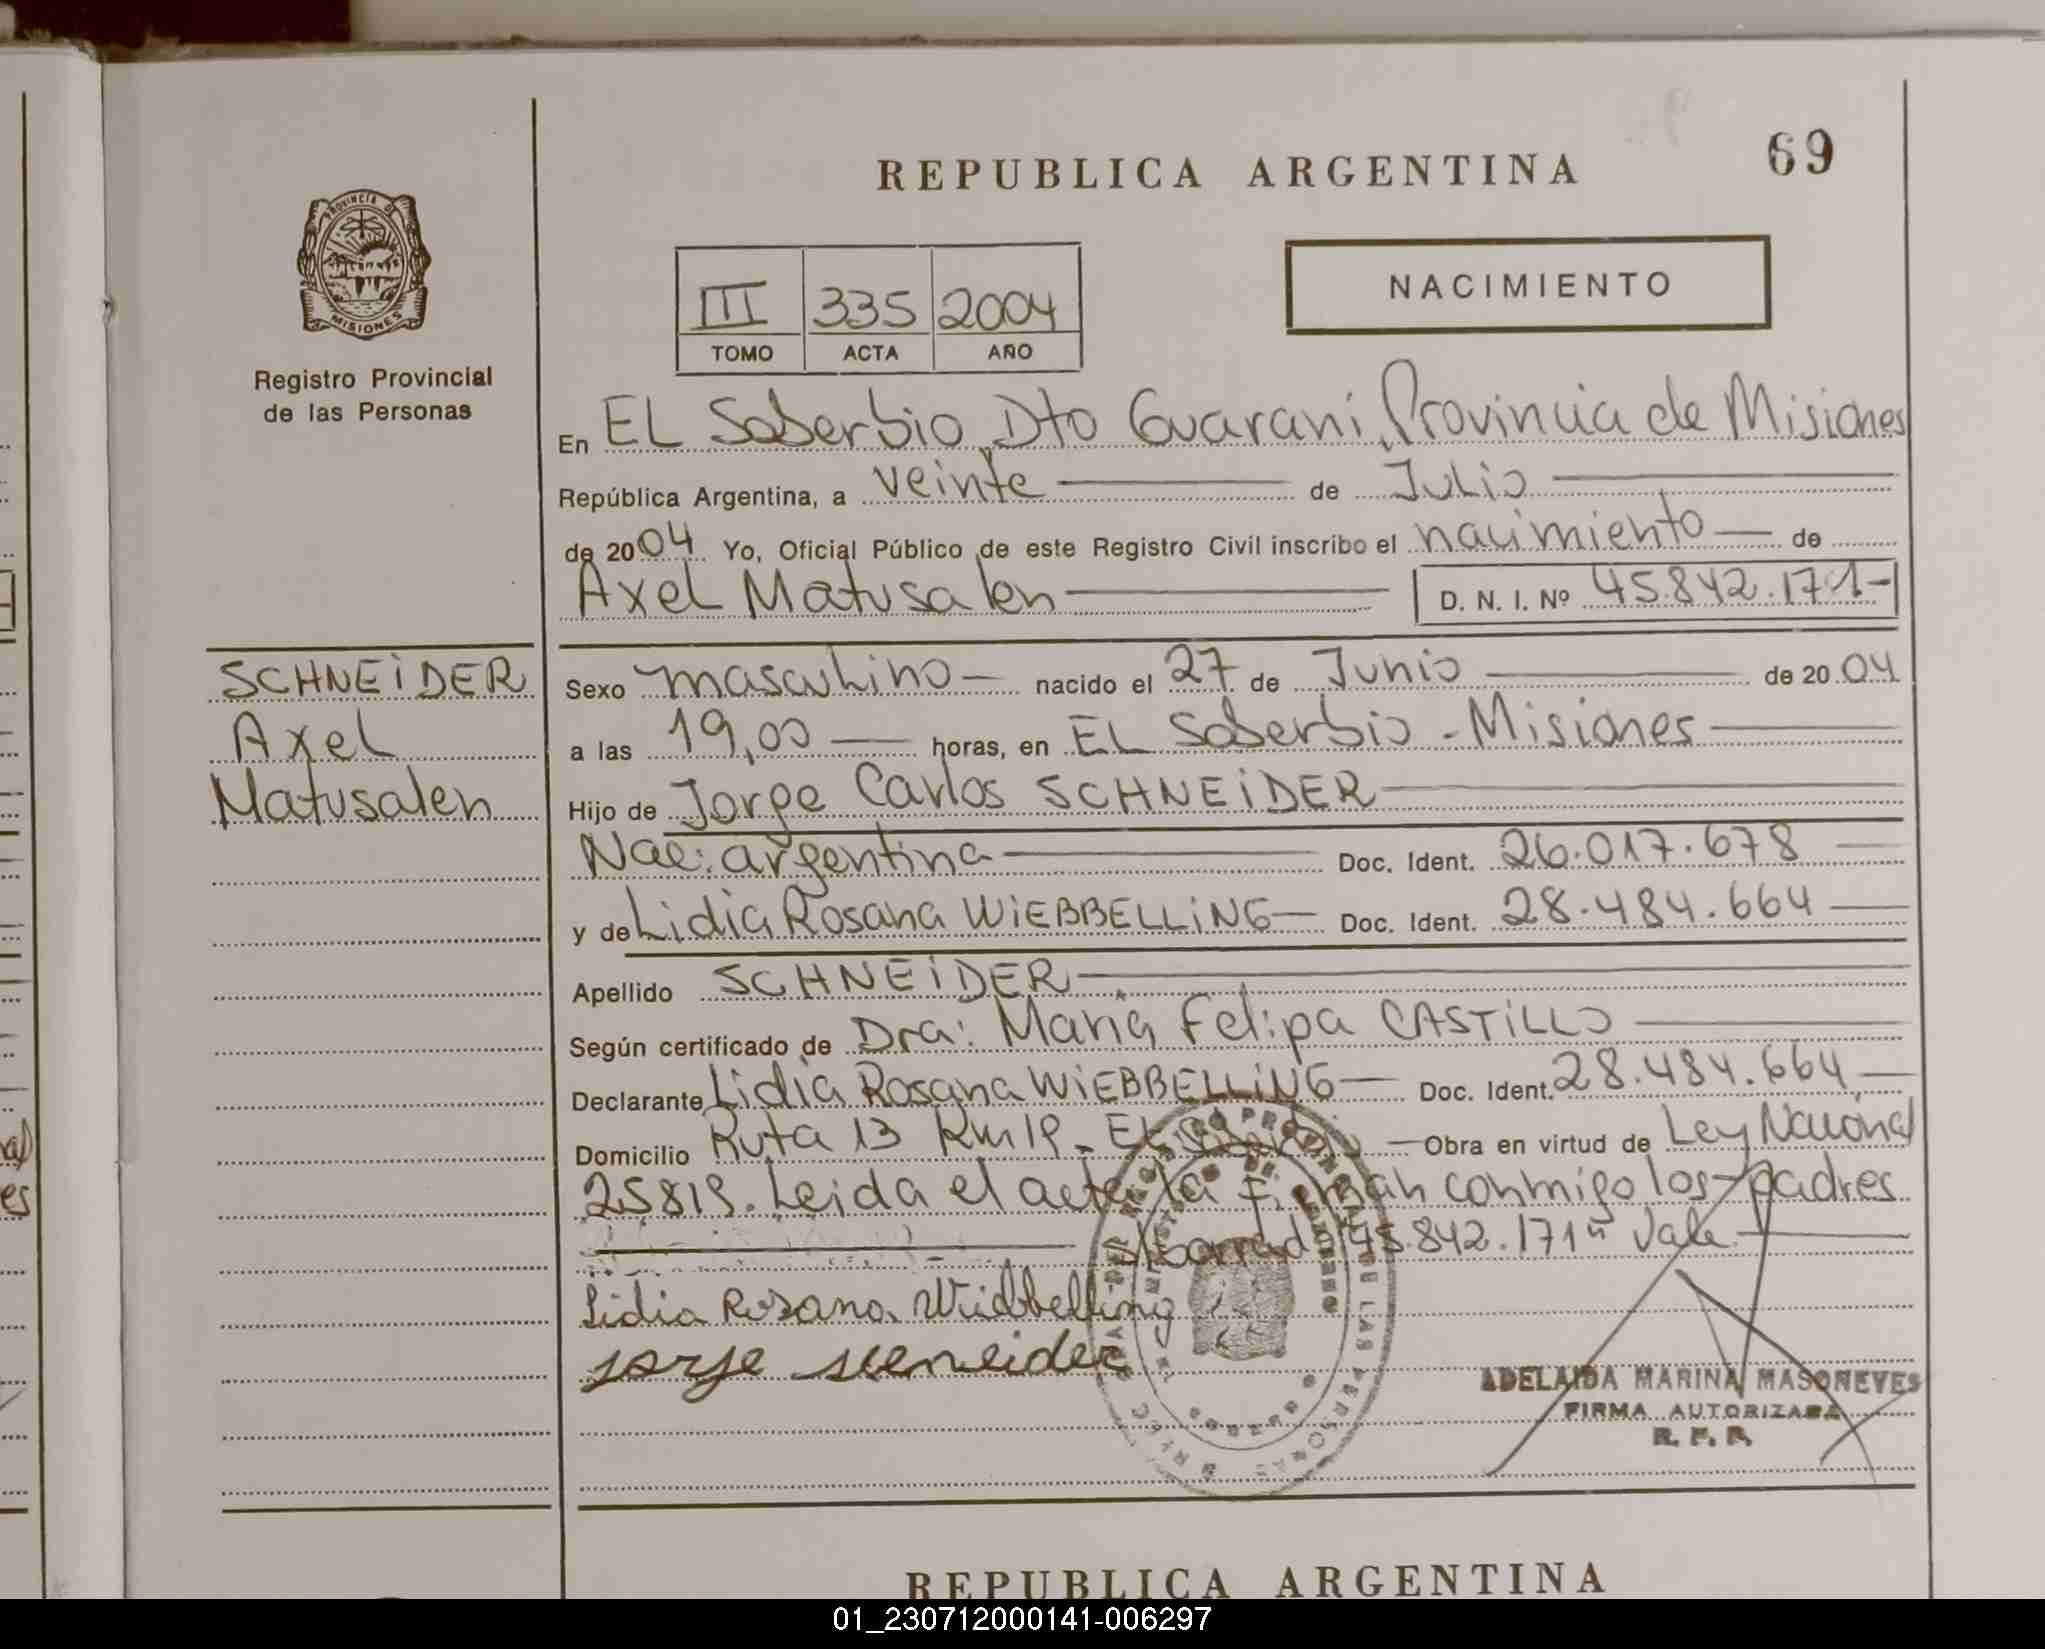 REPUBLICA ARGENTINA
69
PROVINCIA DE
MISIONES
Registro Provincial
de las Personas
III 335 2004
TOMO ACTA AÑO
NACIMIENTO
En EL Soberbio, Dto Guaraní, Provincia de Misiones
República Argentina, a veinte de Julio
de 2004 Yo, Oficial Público de este Registro Civil inscribo el nacimiento de
Axel Matusalen D. N. I. Nº 45.842.171-
SCHNEIDER
Axel
Matusalen
Sexo masculino nacido el 27 de Junio de 2004
a las 19,00 horas, en EL Soberbio - Misiones
Hijo de Jorge Carlos SCHNEIDER
Nac: argentina Doc. Ident. 26.017.678
y de Lidia Rosana WIEBBELLING Doc. Ident. 28.484.664
Apellido SCHNEIDER
Según certificado de Dra: Maria Felipa CASTILLO
Declarante Lidia Rosana WIEBBELLING Doc. Ident. 28.484.664
Domicilio Ruta 13 Km 19 - EL Soberbio Obra en virtud de Ley Nacional
25819. Leida el acta la Firman conmigo los padres
s/borrado "45.842.171" Vale
Lidia Rosana Wiebbelling
Jorge scneider
ADELAIDA MARINA MASONEVES
FIRMA AUTORIZADA
R. P. P.
REPUBLICA ARGENTINA
01_230712000141-006297